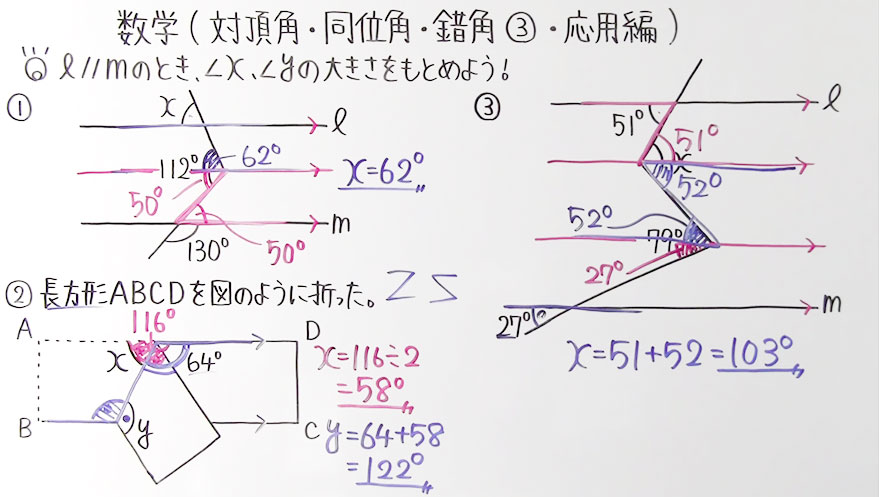 数学(対頂角・同位角・錯角③・応用編)
l//mのとき、∠x、∠yの大きさをもとめよう!
①
x
l
112°
62°
x=62°
50°
m
130°
50°
②長方形ABCDを図のように折った。ZS
116°
A
D
x
64°
x=116÷2
=58°
B
y
C
y=64+58
=122°
③
l
51°
51°
x
52°
52°
79°
27°
m
27°
x=51+52=103°